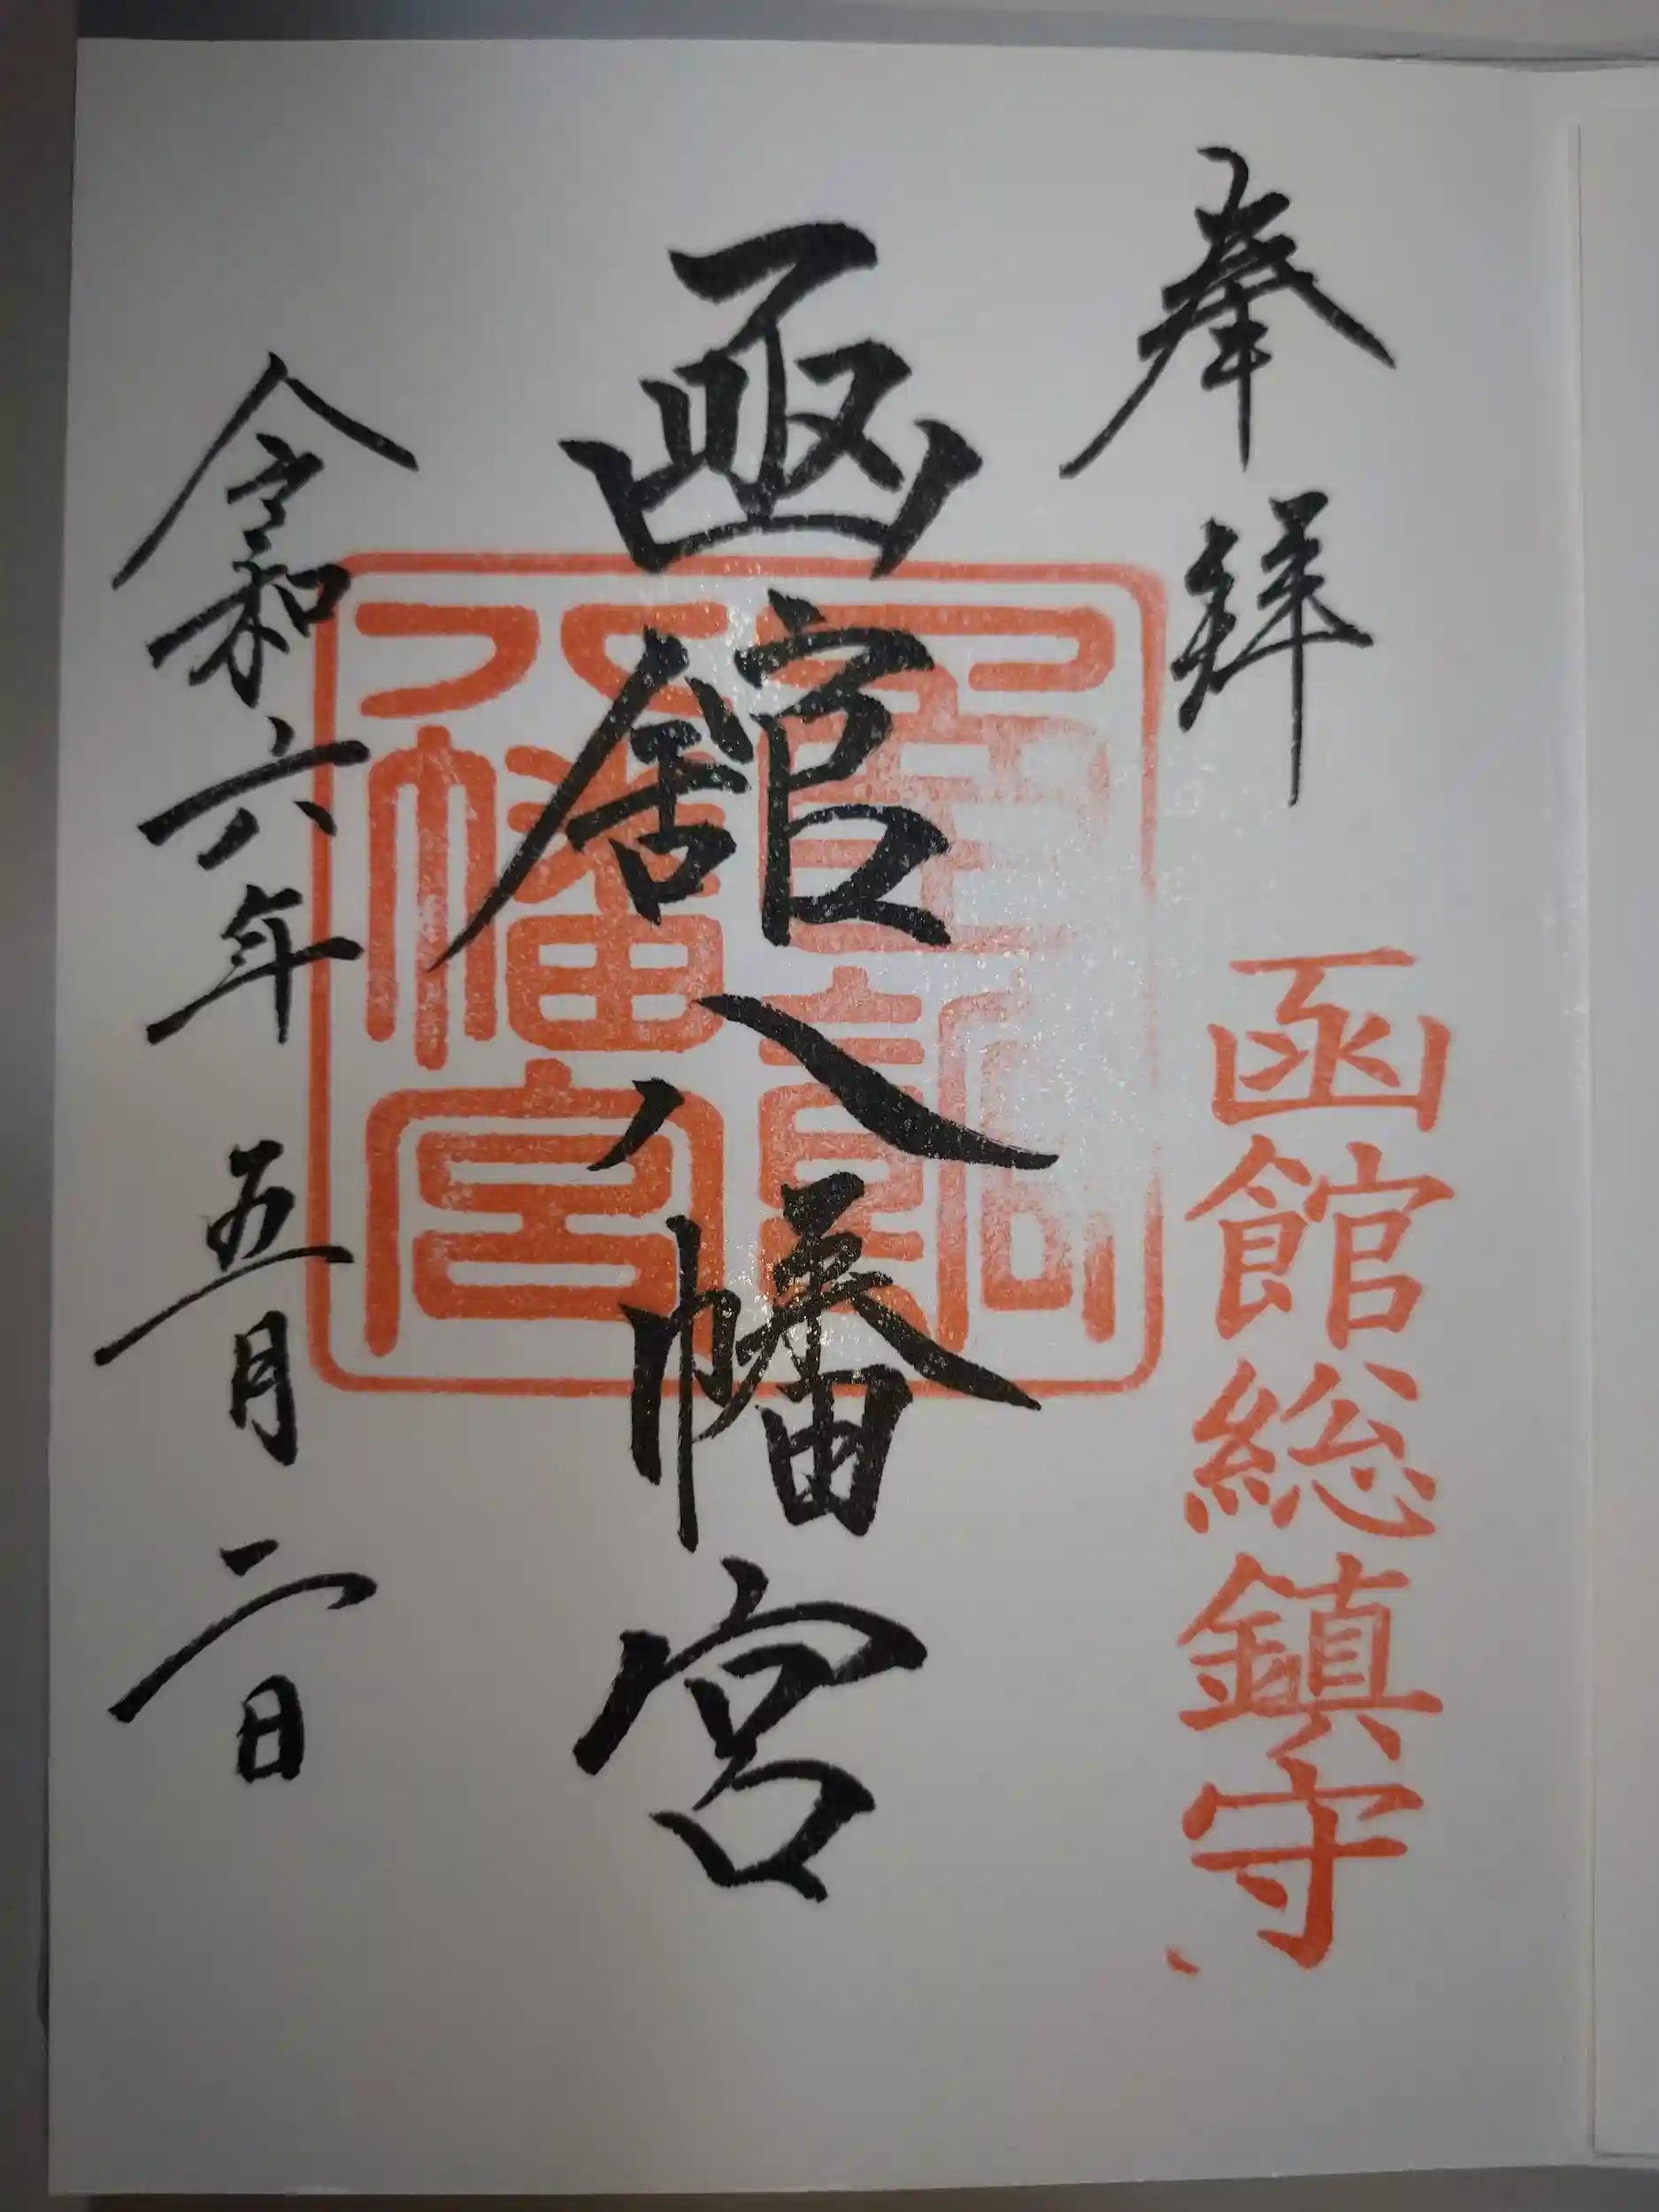 奉拝
函館総鎮守
函館八幡宮
八幡宮
令和六年五月二日